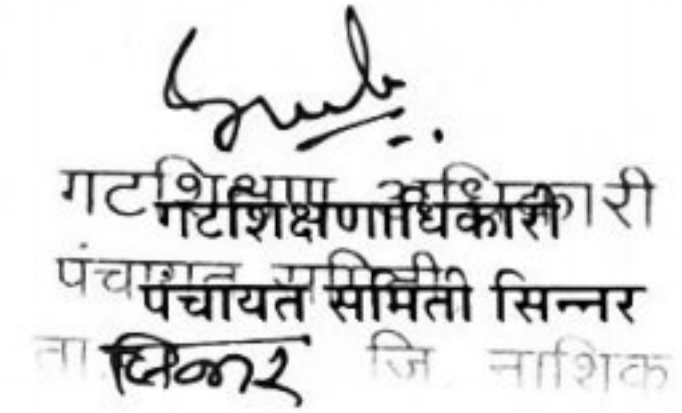 गटशिक्षण अधिकारी
गटशिक्षणाधिकारी
पंचायत समिती
पंचायत समिती सिन्नर
ता. सिन्नर जि. नाशिक